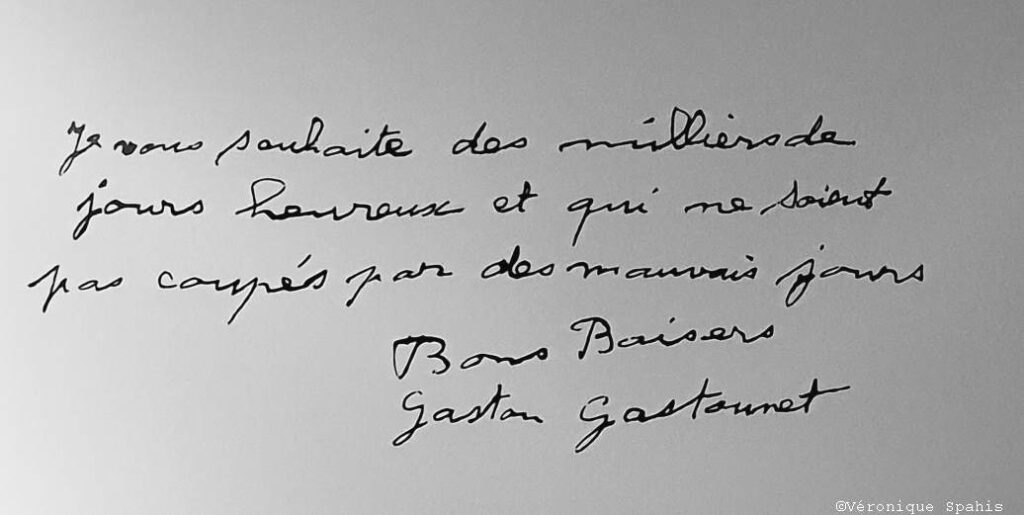 Je vous souhaite des milliers de
jours heureux et qui ne soient
pas coupés par des mauvais jours
Bons Baisers
Gaston Gastounet
©Véronique Spahis